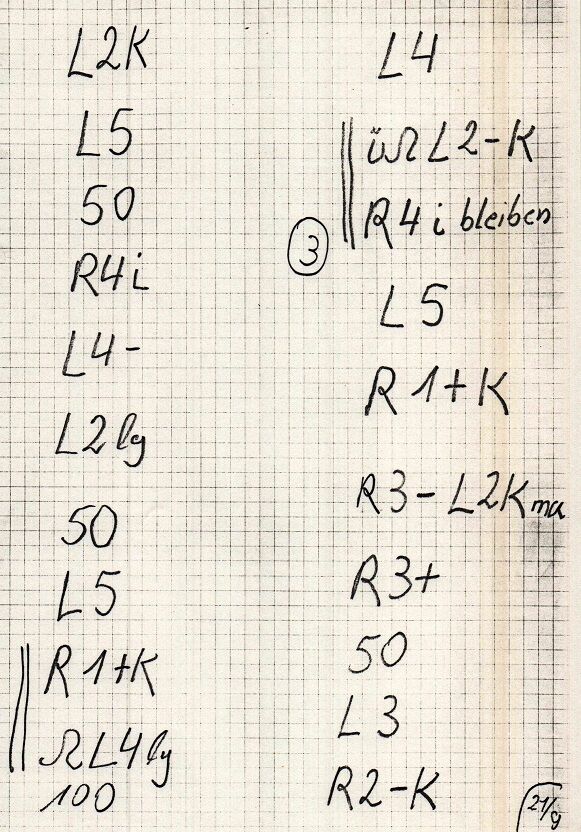 L2K
L5
50
R4i
L4-
L2lg
50
L5
R1+K
ΩL4lg
100
L4
üΩL2-K
R4i bleiben
3
L5
R1+K
R3-L2Kma
R3+
50
L3
R2-K
21/g